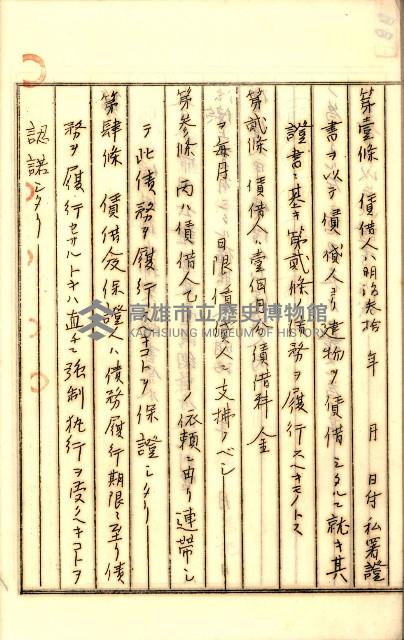 第壹條 賃借人ハ明治参拾 年 月 日付私署證
書ヲ以テ賃貸人ヨリ建物ヲ賃借シタルニ就キ其
證書ニ基キ第貳條ノ債務ヲ履行スヘキモノトス
第貳條 賃借人ハ壹個月分賃借料金
ヲ毎月 日限賃貸人ニ支拂フベシ
第参條 丙ハ賃借人乙 ノ依頼ニ由リ連帯シ
テ此債務ヲ履行スヘキコトヲ保證シタリ
第肆條 賃借人及保證人ハ債務履行期限ニ至リ債
務ヲ履行セサルトキハ直チニ強制執行ヲ受クヘキコトヲ
認諾シタリ
高雄市立歷史博物館
KAOHSIUNG MUSEUM OF HISTORY